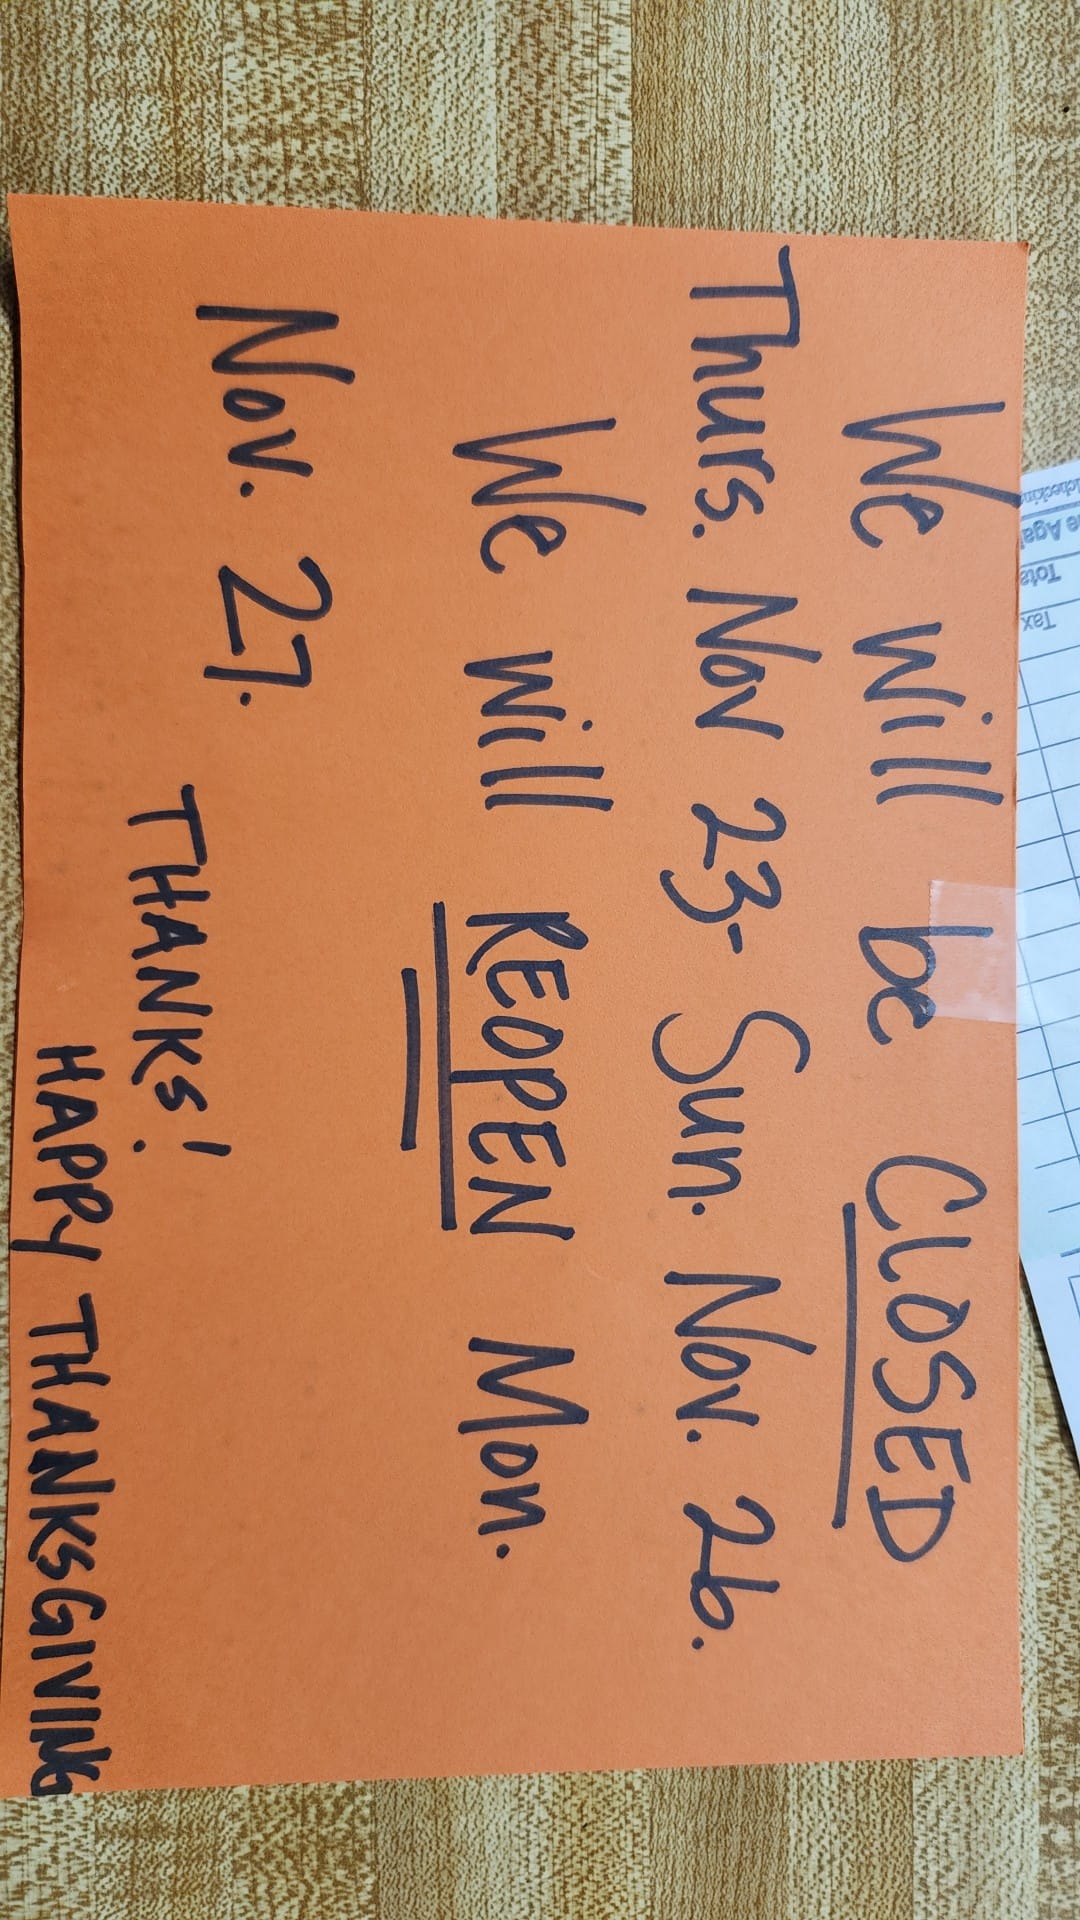 We Will be CLOSED
Thurs. Nov 23- Sun. Nov. 26.
We will REOPEN Mon.
Nov. 27.
THANKS!
HAPPY THANKSGIVING
Tax